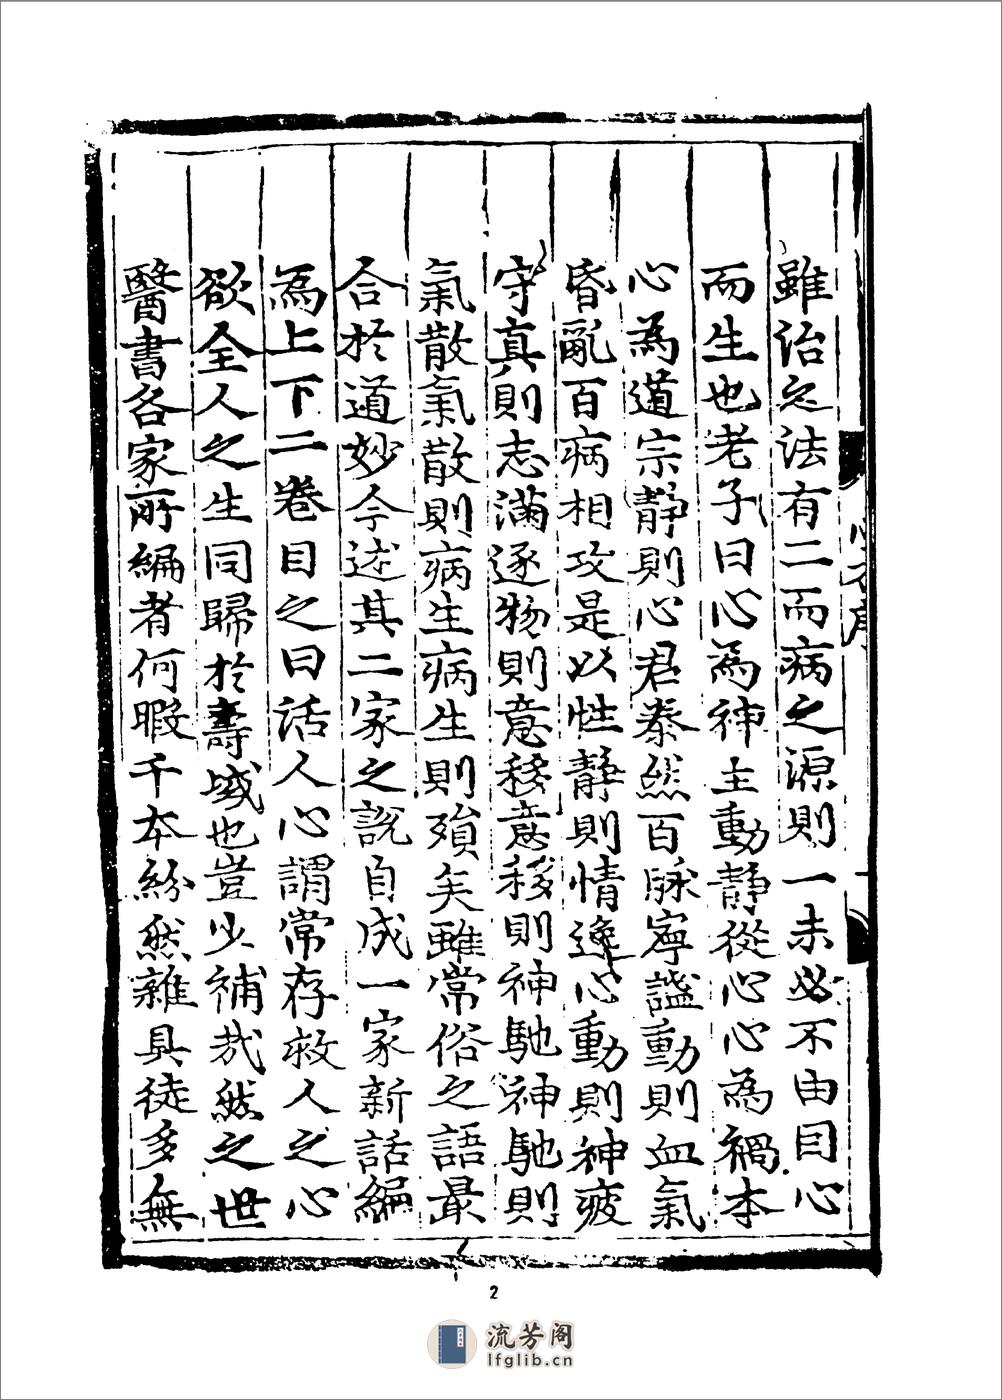 雖治之法有二而病之源則一未必不由因心
而生也老子曰心為神主動靜從心心為禍本
心為道宗靜則心君泰然百脉寧謐動則血氣
昏亂百病相攻是以性靜則情逸心動則神疲
守真則志滿逐物則意移意移則神馳神馳則
氣散氣散則病生病生則殞矣雖常俗之語最
合於道妙今述其二家之說自成一家新話編
為上下二卷目之曰活人心謂常存救人之心
欲全人之生同歸於壽域也豈少補哉然之世
醫書各家所編者何暇千本紛然雜具徒多無
2
流芳阁
lfglib.cn